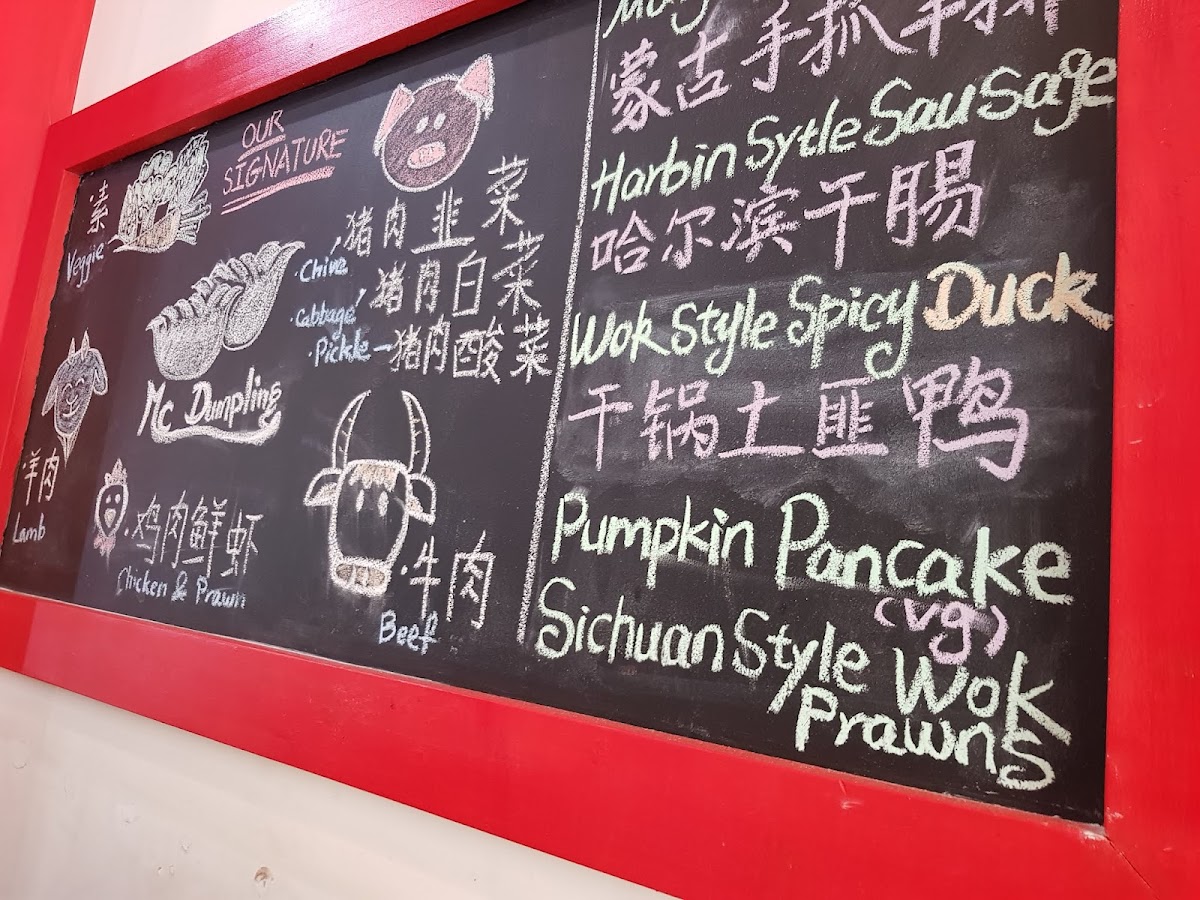 OUR
SIGNATURE
素
Veggie
猪肉韭菜
·Chive
猪肉白菜
·Cabbage
·Pickle—猪肉酸菜
Mc Dumpling
·羊肉
Lamb
·鸡肉鲜虾
Chicken & Prawn
·牛肉
Beef
蒙古手抓羊排
Harbin Sytle Sausage
哈尔滨干腸
Wok Style Spicy Duck
干锅土匪鸭
Pumpkin Pancake
(vg)
Sichuan Style Wok
Prawns